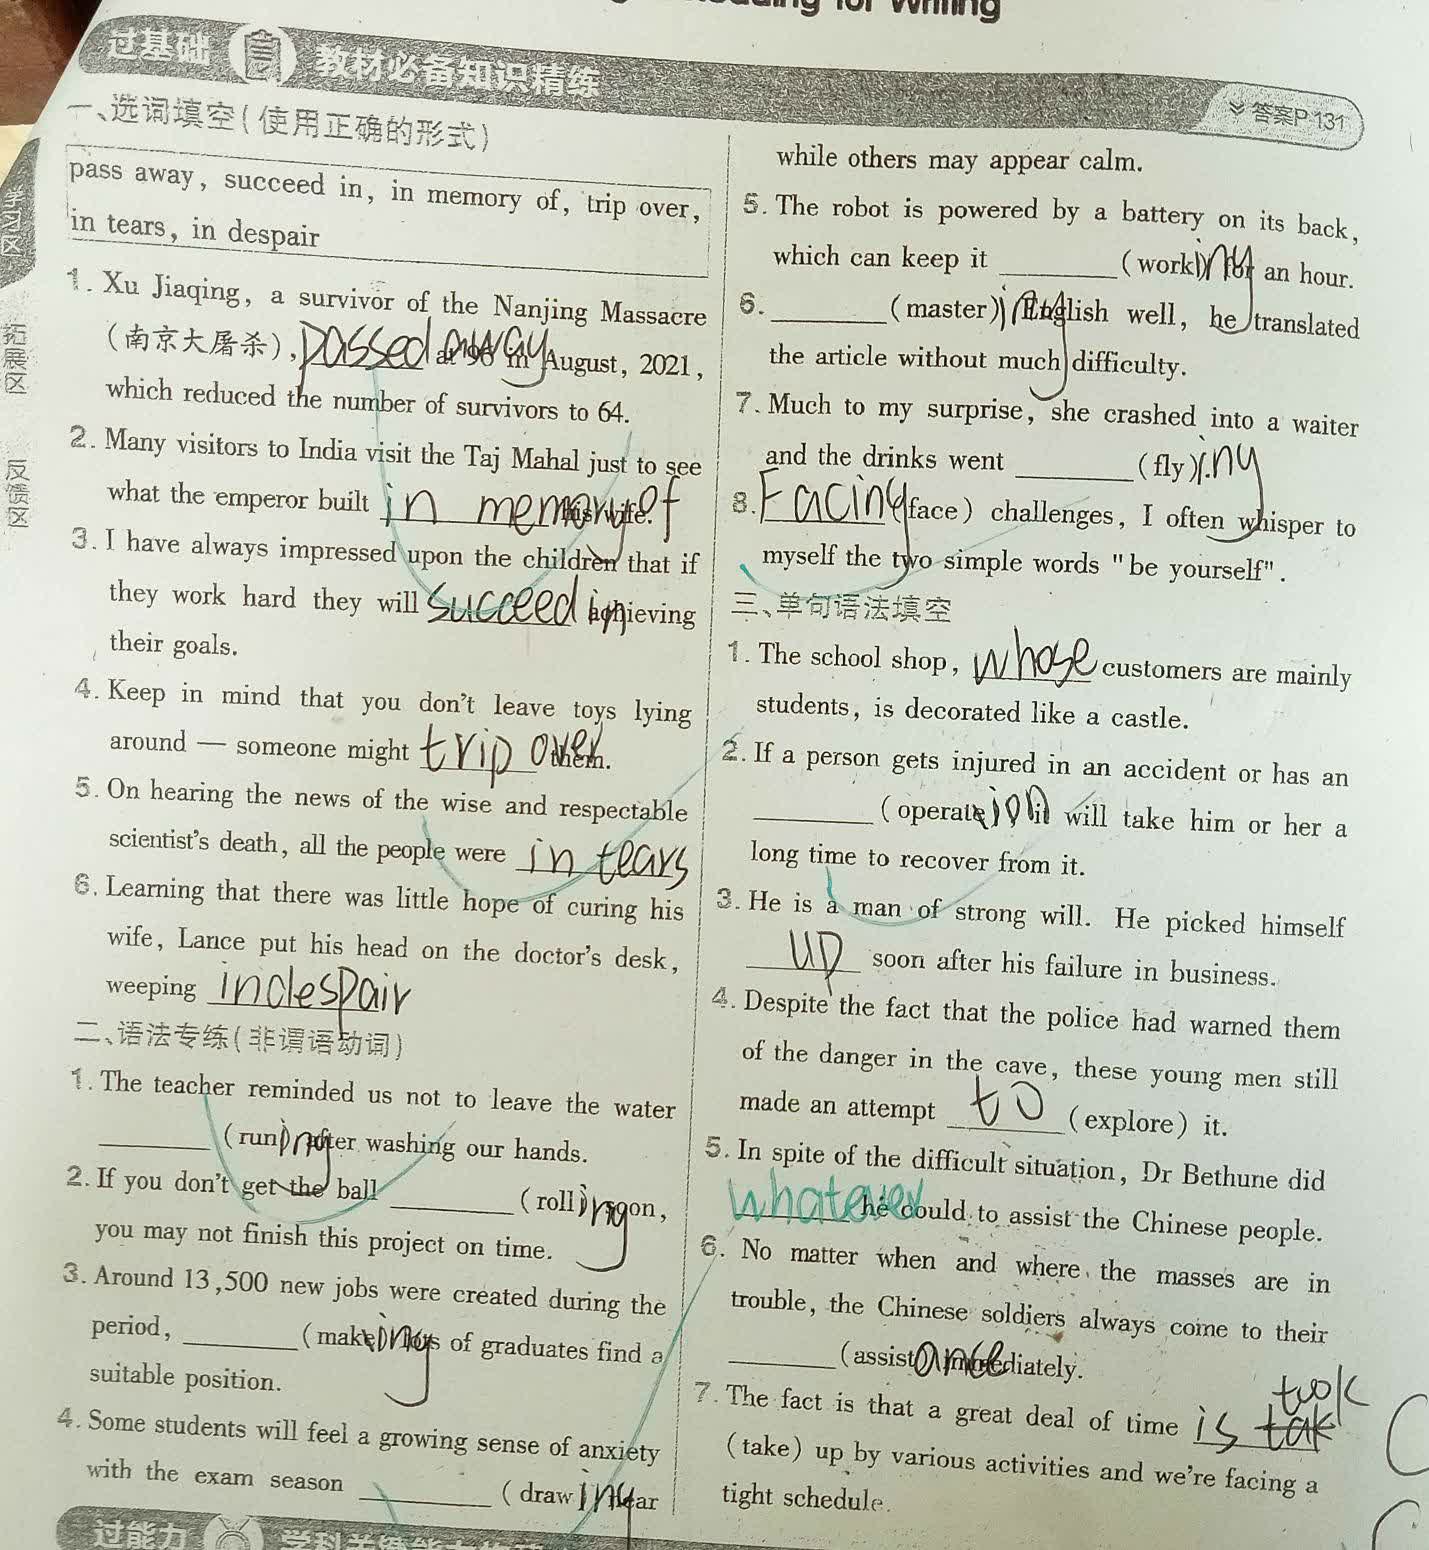 Reading for Writing
过基础 教材必备知识精练
答案P 131
一、选词填空(使用正确的形式)
pass away, succeed in, in memory of, trip over,
in tears, in despair
1. Xu Jiaqing, a survivor of the Nanjing Massacre
(南京大屠杀), passed away at 96 in August, 2021,
which reduced the number of survivors to 64.
2. Many visitors to India visit the Taj Mahal just to see
what the emperor built in memory of his wife.
3. I have always impressed upon the children that if
they work hard they will succeed in achieving
their goals.
4. Keep in mind that you don't leave toys lying
around — someone might trip over them.
5. On hearing the news of the wise and respectable
scientist's death, all the people were in tears
6. Learning that there was little hope of curing his
wife, Lance put his head on the doctor's desk,
weeping in despair
二、语法专练(非谓语动词)
1. The teacher reminded us not to leave the water
________ (run) ing after washing our hands.
2. If you don't get the ball ________ (roll) ing soon,
you may not finish this project on time.
3. Around 13,500 new jobs were created during the
period, ________ (make) ing lots of graduates find a
suitable position.
4. Some students will feel a growing sense of anxiety
with the exam season ________ (draw) ing near
while others may appear calm.
5. The robot is powered by a battery on its back,
which can keep it ________ (work) ing for an hour.
6. ________ (master) ing English well, he translated
the article without much difficulty.
7. Much to my surprise, she crashed into a waiter
and the drinks went ________ (fly) ing
8. Facing (face) challenges, I often whisper to
myself the two simple words "be yourself".
三、单句语法填空
1. The school shop, whose customers are mainly
students, is decorated like a castle.
2. If a person gets injured in an accident or has an
________ (operate) ion it will take him or her a
long time to recover from it.
3. He is a man of strong will. He picked himself
up soon after his failure in business.
4. Despite the fact that the police had warned them
of the danger in the cave, these young men still
made an attempt to (explore) it.
5. In spite of the difficult situation, Dr Bethune did
whatever he could to assist the Chinese people.
6. No matter when and where the masses are in
trouble, the Chinese soldiers always come to their
________ (assist) ance immediately.
took
7. The fact is that a great deal of time is tak
(take) up by various activities and we're facing a
tight schedule.
学习区
拓展区
反馈区
过能力